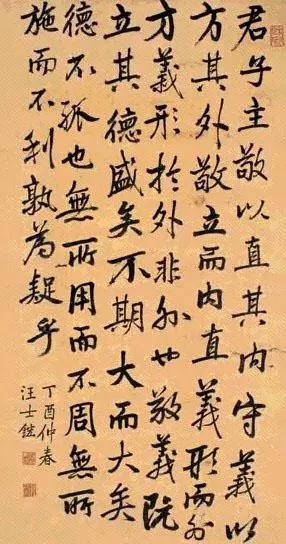 君子主敬以直其内守義以
方其外敬立而内直義形而外
方義形於外非外也敬義既
立其德盛矣不期大而大矣
德不孤也無所用而不周無所
施而不利孰為疑乎
丁酉仲春
汪士鋐